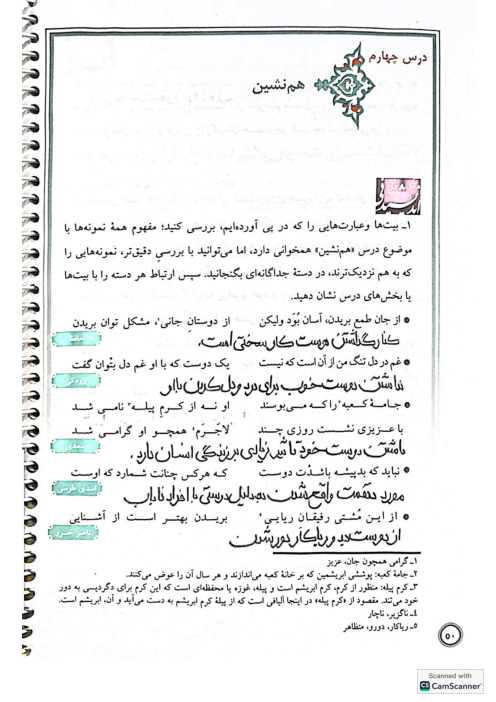 درس چهارم
هم‌نشین
۱ـ بیت‌ها و عبارت‌هایی را که در پی آورده‌ایم، بررسی کنید؛ مفهوم همهٔ نمونه‌ها با
موضوع درس «هم‌نشین» همخوانی دارد، اما می‌توانید با بررسی دقیق‌تر، نمونه‌هایی را
که به هم نزدیک‌ترند، در دستهٔ جداگانه‌ای بگنجانید. سپس ارتباط هر دسته را با بیت‌ها
یا بخش‌های درس نشان دهید.
● از جان طمع بریدن، آسان بُوَد ولیکن از دوستانِ جانی۱، مشکل توان بریدن
کنار گذاشتن دوست کار سختی است.
حافظ
● غم در دل تنگ من از آن است که نیست یک دوست که با او غم دل بتْوان گفت
نداشتن دوست خوب برای درد و دل کردن با او
رودکی
● جـامـهٔ کـعبه۲ را کـه مـی‌بوسند او نـه از کـرمِ پیلـه۳ نامـی شـد
با عـزیـزی نشسـت روزی چنـد لاجَـرَم۴ همچـو او گرامـی شـد
داشتن دوست خود تأثیر زیادی بر زندگی انسان دارد.
سعدی
● نباید که بدپیشه باشدْت دوست کـه هرکس چنانت شمارد که اوست
مورد تهمت واقع شدن به دلیل دوستی با افراد ناباب
اسدی طوسی
● از ایـن مُشتـی رفیقـان ریایـی۵ بریـدن بهتـر اسـت از آشـنایی
از دوست بد و ریاکار دور شدن
ناصر خسرو
۱ـ گرامی همچون جان، عزیز
۲ـ جامهٔ کعبه: پوششی ابریشمین که بر خانهٔ کعبه می‌اندازند و هر سال آن را عوض می‌کنند.
۳ـ کرم پیله: منظور از کرم، کرم ابریشم است و پیله، غوزه یا محفظه‌ای است که این کرم برای دگردیسی به دور
خود می‌تند. مقصود از «کرم پیله» در اینجا الیافی است که از پیلهٔ کرم ابریشم به دست می‌آید و آن، ابریشم است.
۴ـ ناگزیر، ناچار
۵ـ ریاکار، دورو، متظاهر
۵۰
Scanned with
CS CamScanner